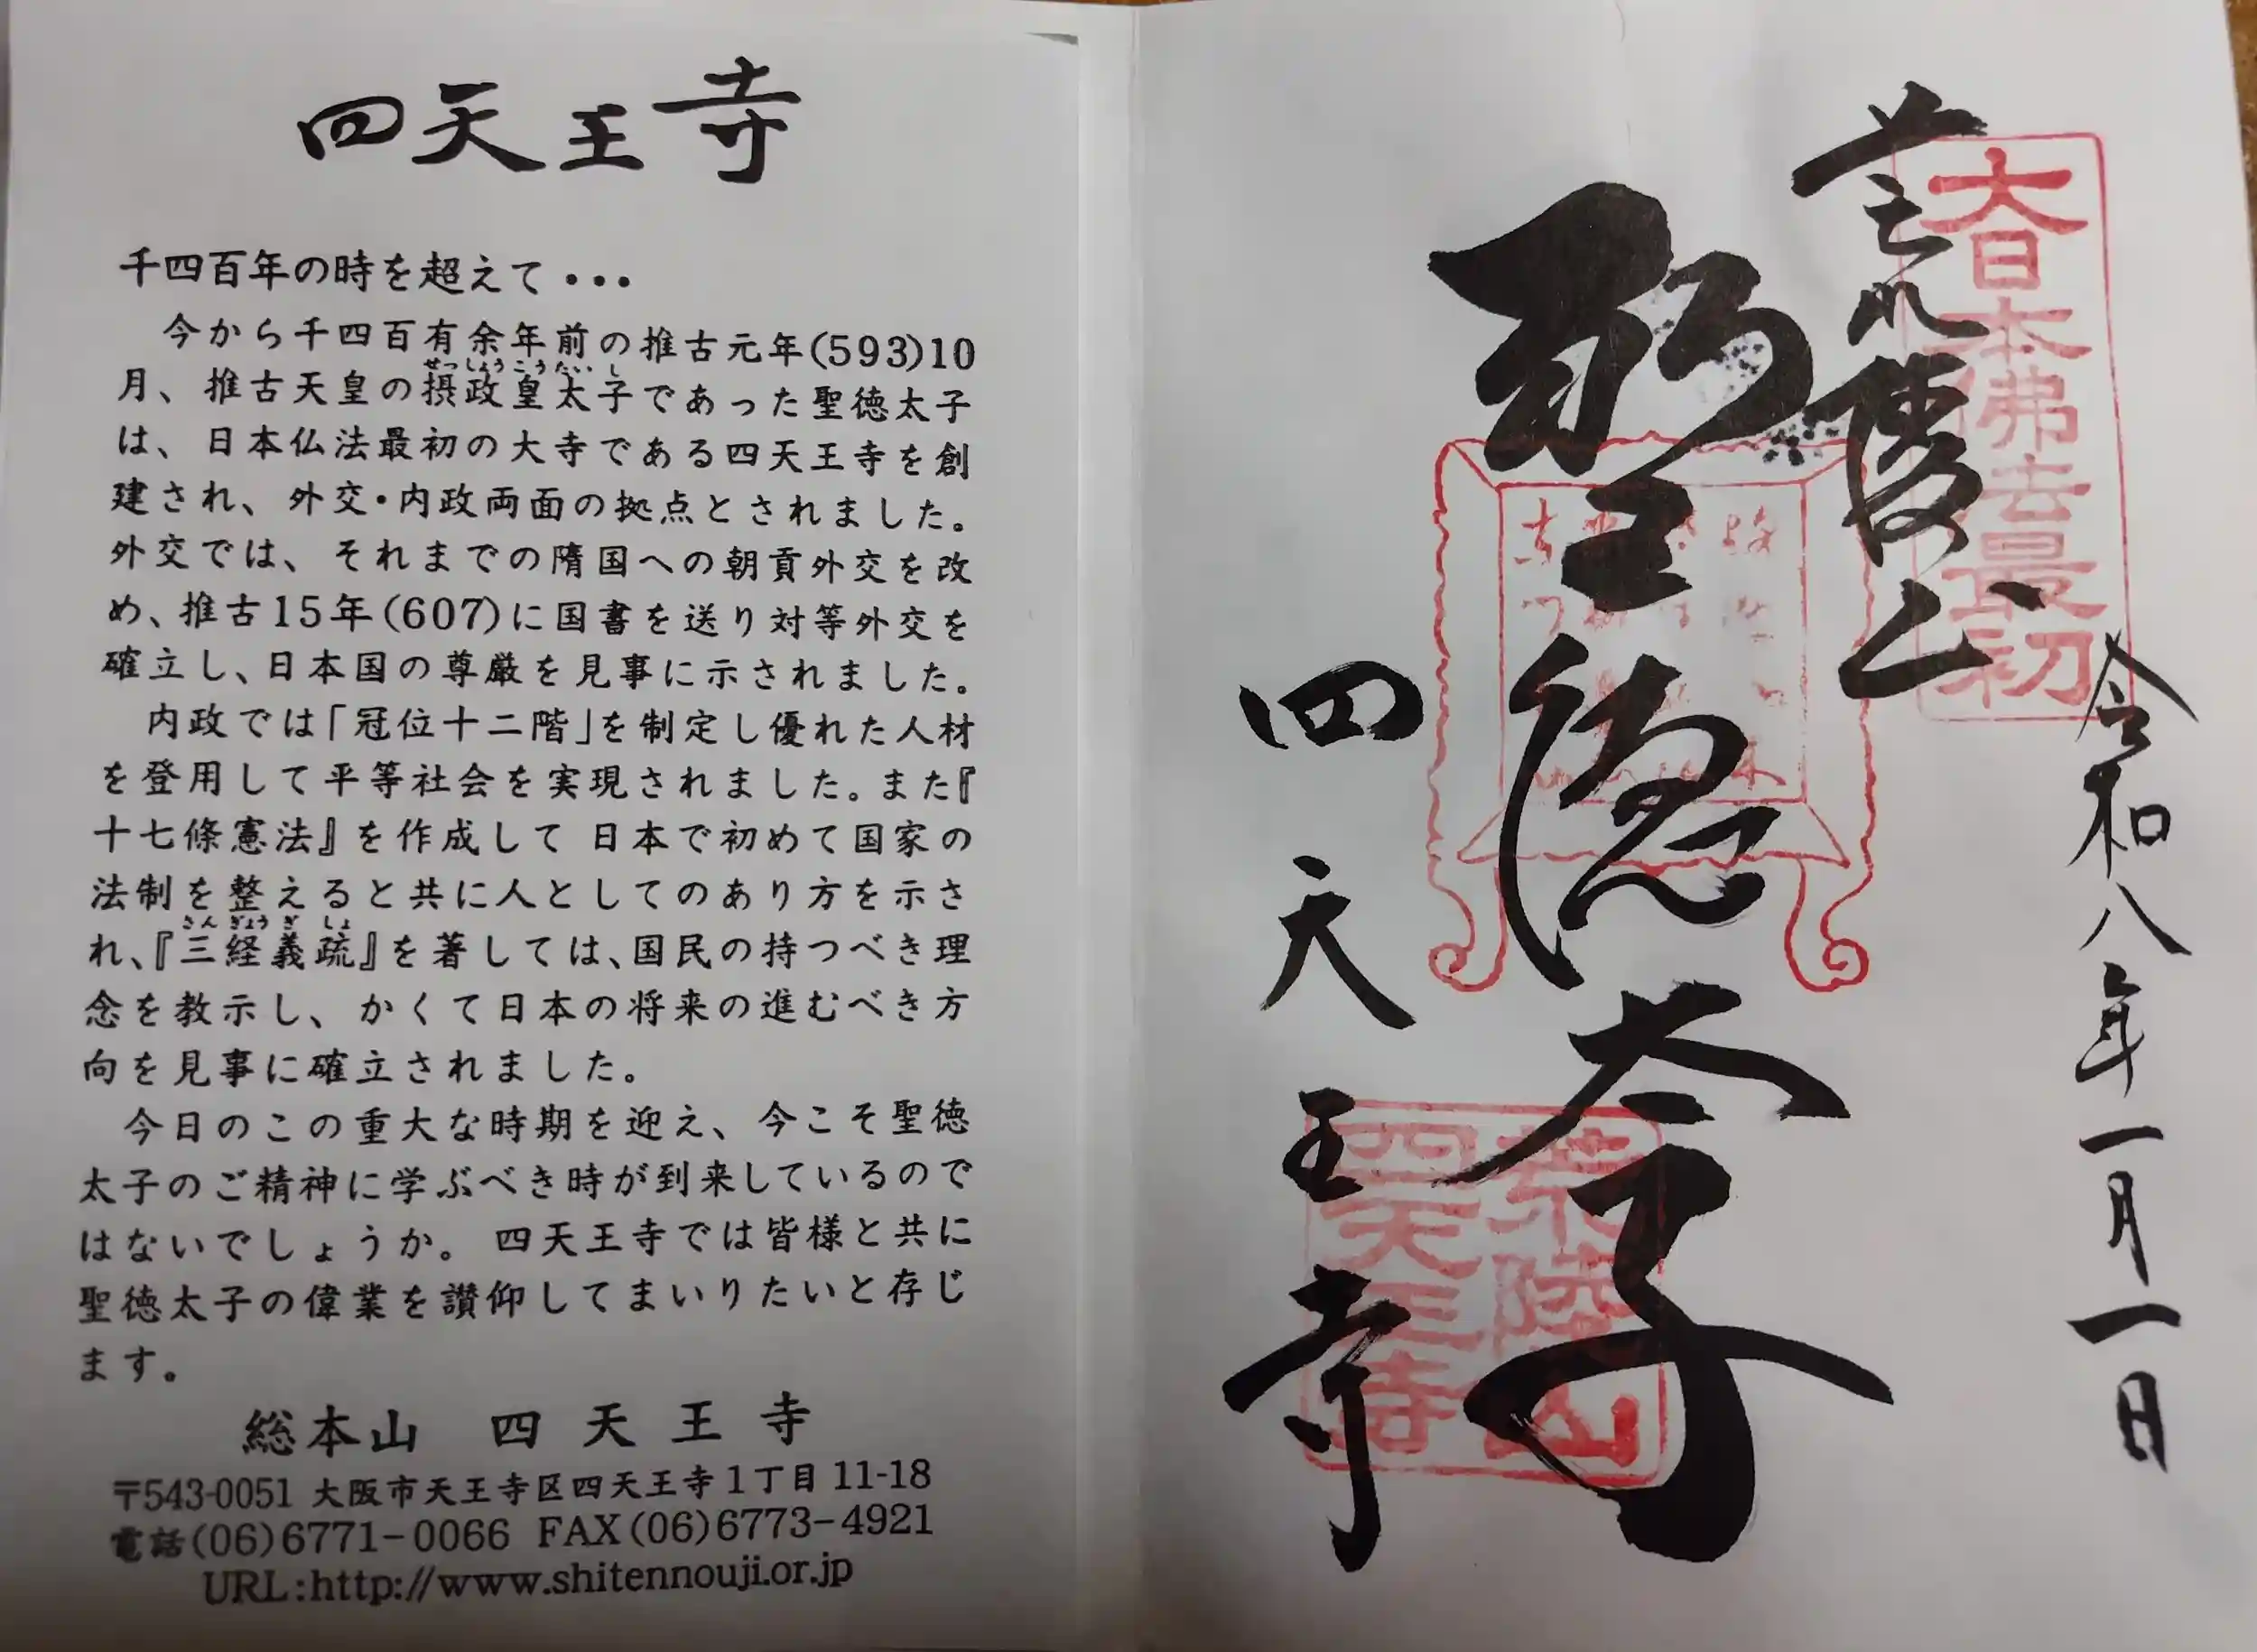 四天王寺
千四百年の時を超えて・・・
今から千四百有余年前の推古元年(593)10
せっしょうこうたいし
月、推古天皇の摂政皇太子であった聖徳太子
は、日本仏法最初の大寺である四天王寺を創
建され、外交・内政両面の拠点とされました。
外交では、それまでの隋国への朝貢外交を改
め、推古15年(607)に国書を送り対等外交を
確立し、日本国の尊厳を見事に示されました。
内政では「冠位十二階」を制定し優れた人材
を登用して平等社会を実現されました。また『
十七條憲法』を作成して日本で初めて国家の
法制を整えると共に人としてのあり方を示さ
さんぎょうぎしょ
れ、『三経義疏』を著しては、国民の持つべき理
念を教示し、かくて日本の将来の進むべき方
向を見事に確立されました。
今日のこの重大な時期を迎え、今こそ聖徳
太子のご精神に学ぶべき時が到来しているので
はないでしょうか。四天王寺では皆様と共に
聖徳太子の偉業を讃仰してまいりたいと存じ
ます。
総本山 四天王寺
〒543-0051 大阪市天王寺区四天王寺1丁目11-18
電話(06)6771-0066 FAX(06)6773-4921
URL:http://www.shitennouji.or.jp
令和八年一月一日
大日本佛法最初
荒陵山
聖徳太子
四天王寺
荒陵山
四天王寺